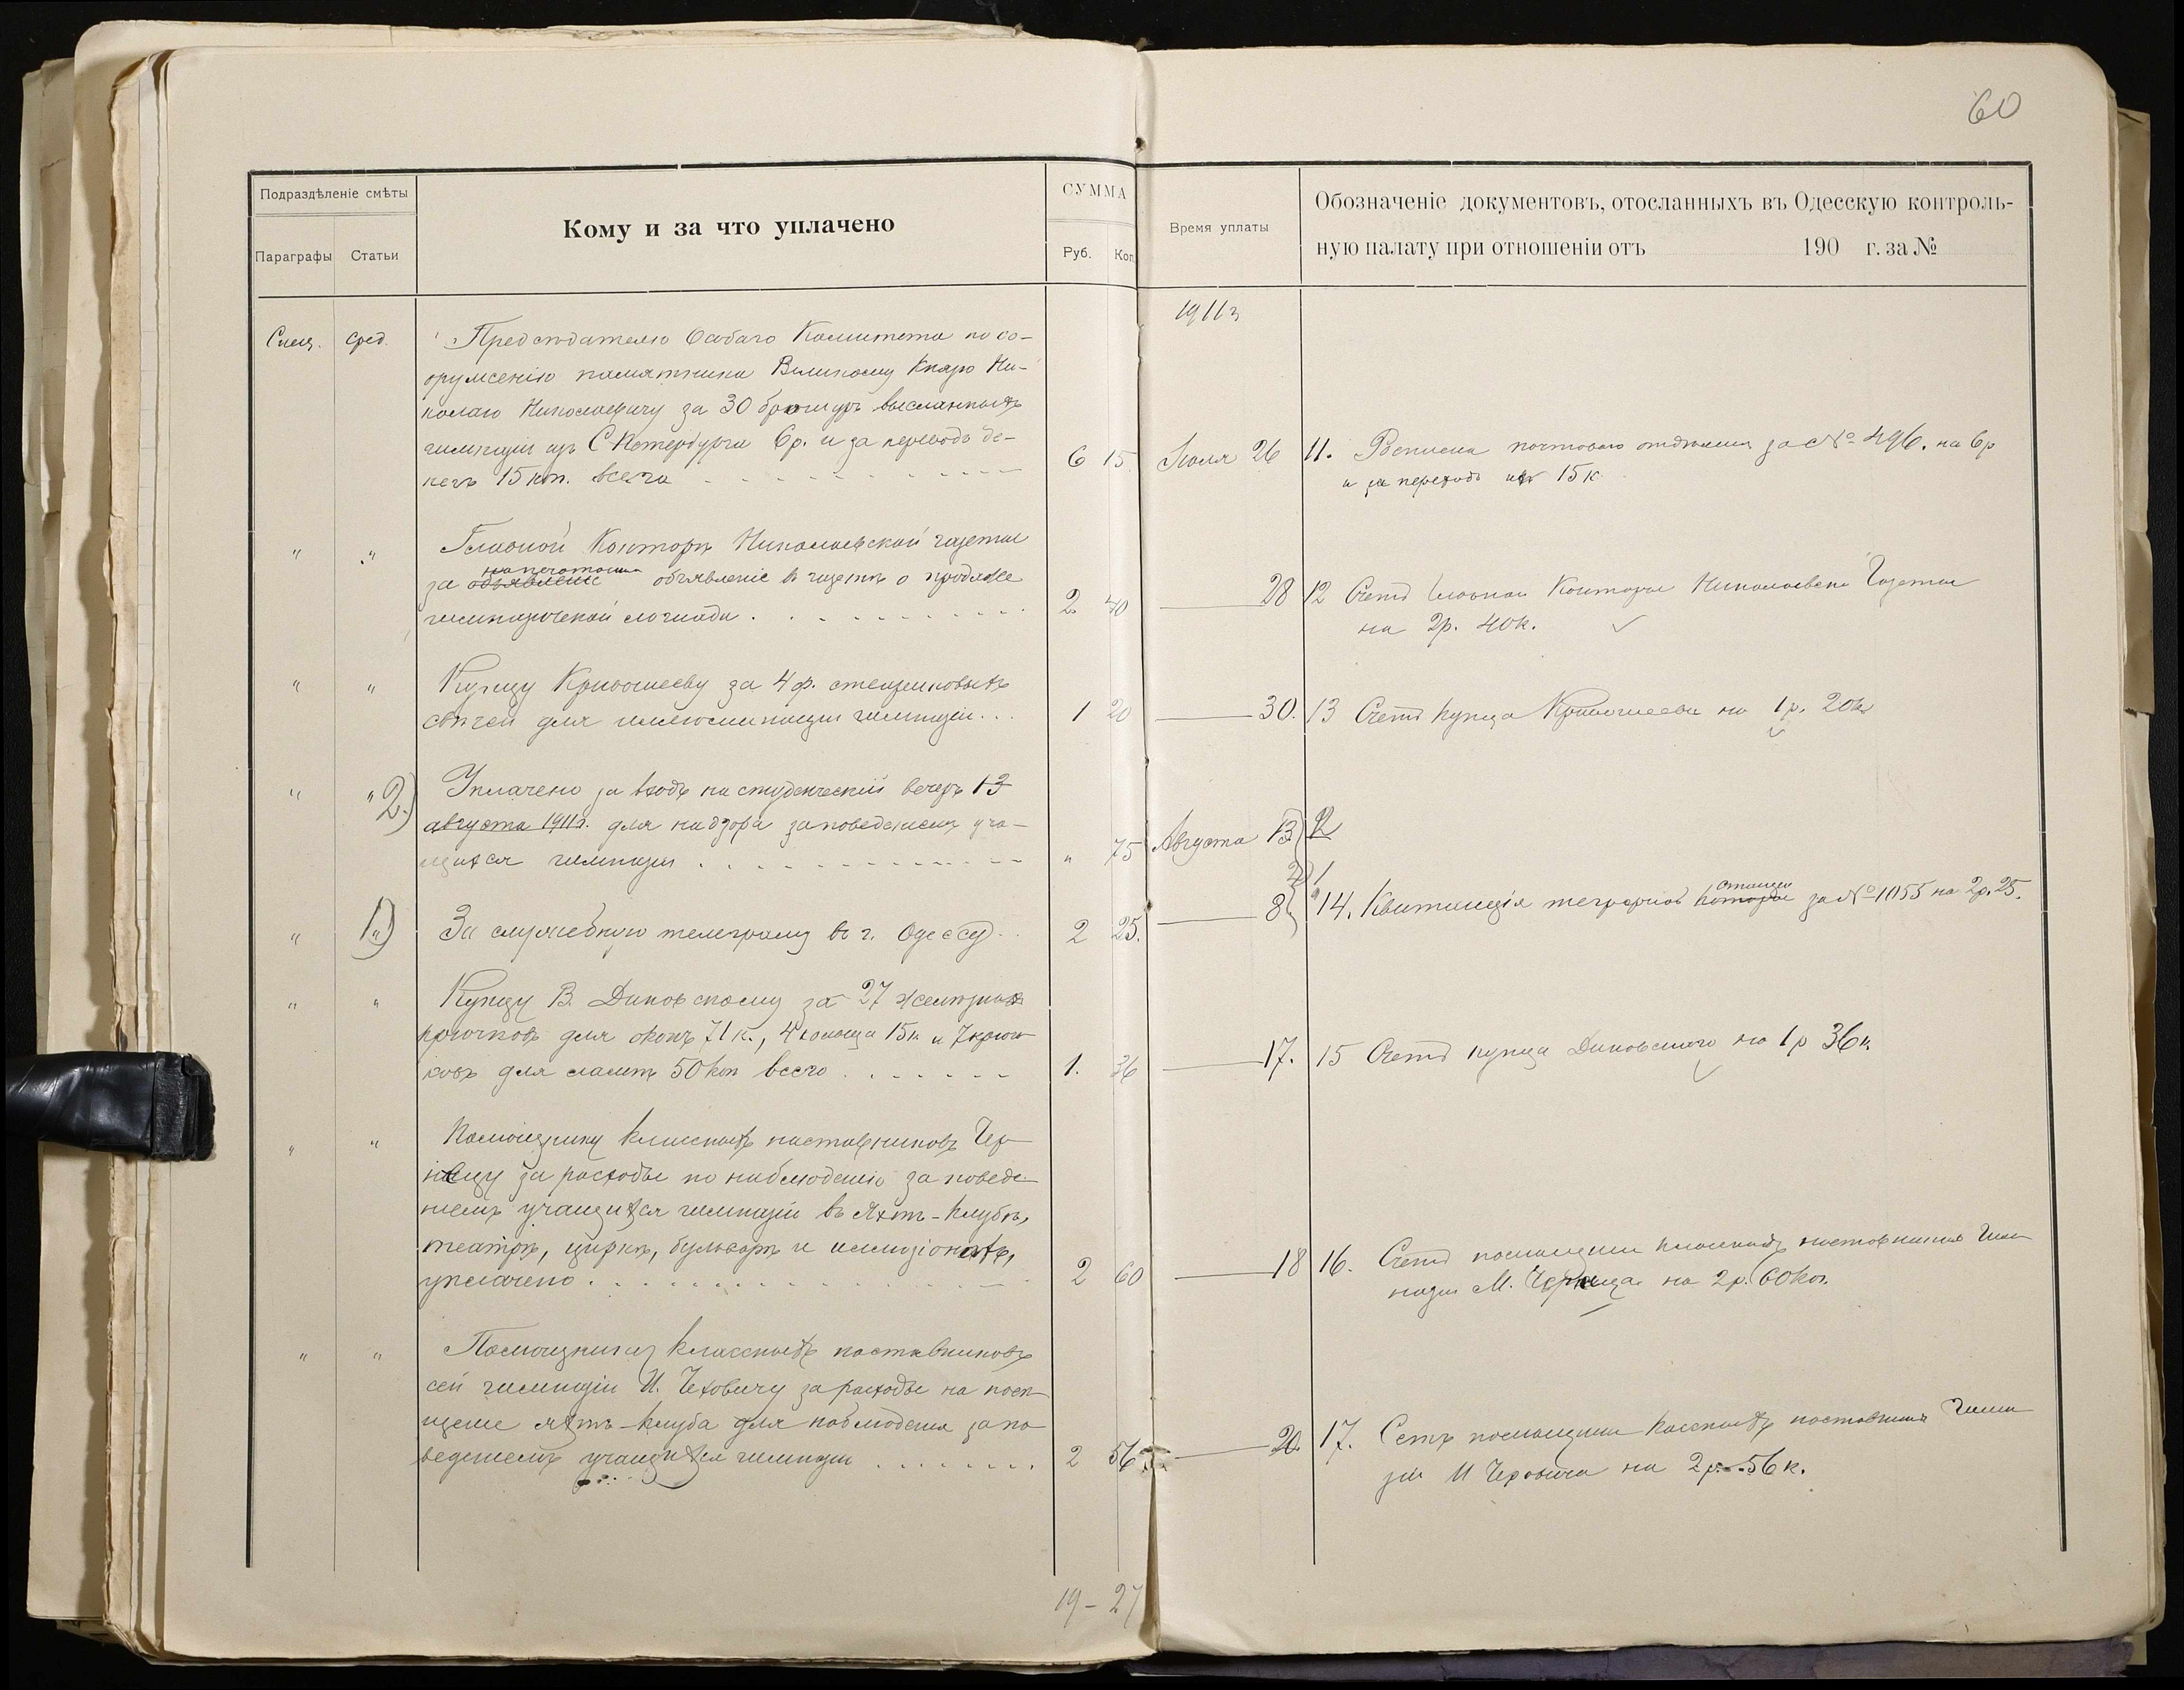 60
Подраздѣленіе смѣты
Параграфы Статьи
Кому и за что уплачено
СУММА
Руб. Коп.
Время уплаты
Обозначеніе документовъ, отосланныхъ въ Одесскую контроль-
ную палату при отношеніи отъ 190 г. за №
1911 г
Спец. сред. Предсѣдателю Особаго Комитета по со-
оруженію памятника Великому Князю Ни-
колаю Николаевичу за 30 брошуръ высланныхъ
гимназіи изъ С Петербурга 6 р. и за переводъ де-
негъ 15 коп. всего 6 15
Іюля 26 11. Росписка почтоваго отдѣленія за № 496. на 6 р
и за переводъ 15 к.
" " Главной Конторѣ Николаевской газеты
за объявленіе напечатаніе объявленіе въ газетѣ о продаже
гимназической лошади 2. 40
28 12 Счетъ Главной Конторы Николаевской Газеты
на 2 р. 40 к.
" " Купцу Кривошееву за 4 ф. стеариновыхъ
свѣчей для иллюминаціи гимназіи 1 20
30. 13 Счетъ купца Кривошеева на 1 р. 20 к
" " 2) Уплачено за входъ на студенческій вечеръ 13
августа 1911 г. для надзора за поведеніемъ уча-
щихся гимназіи " 75
Августа 13
" 1) За служебную телеграму въ г. Одессу 2 25.
8 14. Квитанція станціи конторы за № 1055 на 2 р. 25.
" " Купцу В. Диковскому за 27 желѣзныхъ
крючковъ для оконъ 71 к., 4 кольца 15 к. и 7 крюч-
ковъ для лампъ 50 коп всего 1. 36
17. 15 Счетъ купца Диковскаго на 1 р 36 к.
" " Помощнику классныхъ наставниковъ Чер-
нецу за расходы по наблюденію за поведе-
ніемъ учащихся гимназіи въ Яхтъ-Клубѣ,
театрѣ, циркѣ, бульварѣ и иллюзіонахъ,
уплачено 2 60
18 16. Счетъ помощника классныхъ наставниковъ Гим-
назіи М. Чернеца на 2 р. 60 коп.
" " Помощнику классныхъ наставниковъ
сей гимназіи И. Чеховичу за расходы на посѣ-
щеніе яхтъ-клуба для наблюденія за по-
веденіемъ учащихся гимназіи 2 56
20. 17. Счетъ помощника классныхъ наставниковъ Гимна-
зіи И Чеховича на 2 р. 56 к.
19 - 27